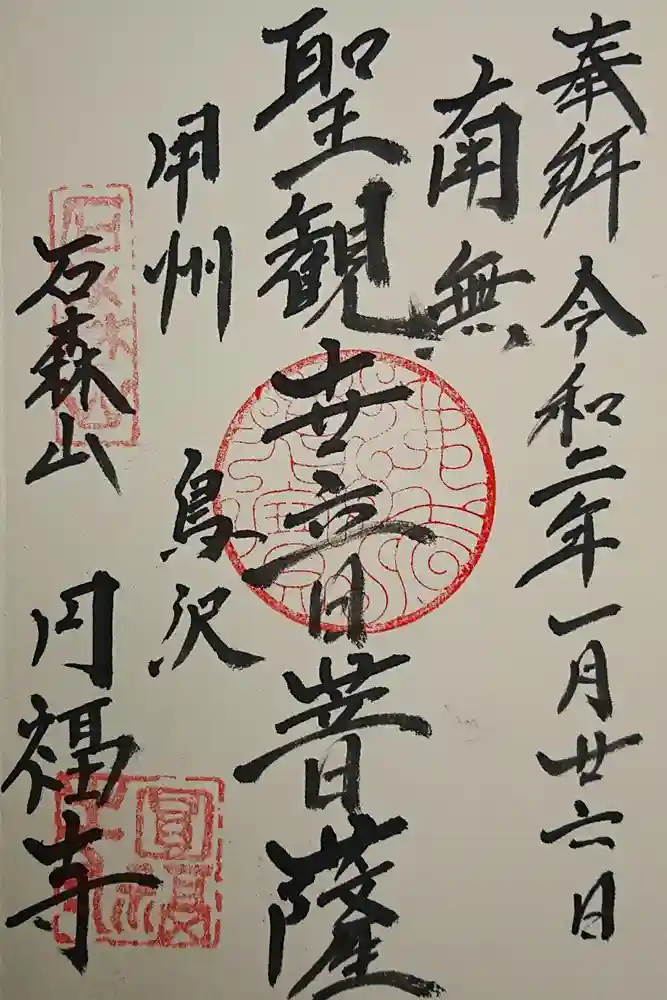 奉拝 令和二年一月廿六日
南無
聖観世音菩薩
甲州 鳥沢
石森山 円福寺
石森山
圓福